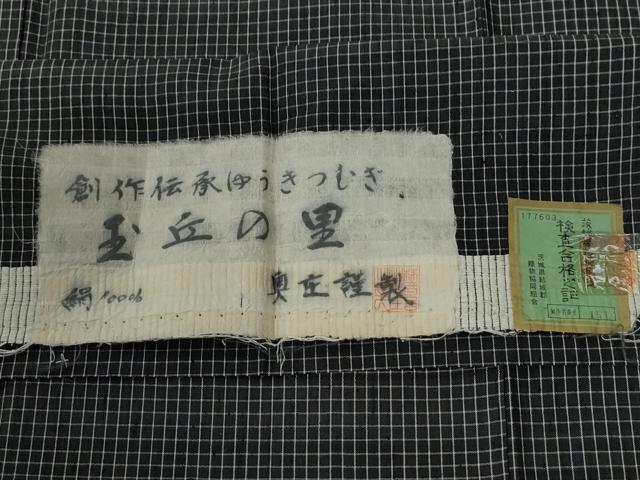 創作伝承ゆうきつむぎ
玉丘の里
絹100%
奥庄謹製
177603
検査合格之証
茨城県結城郡
織物協同組合
151